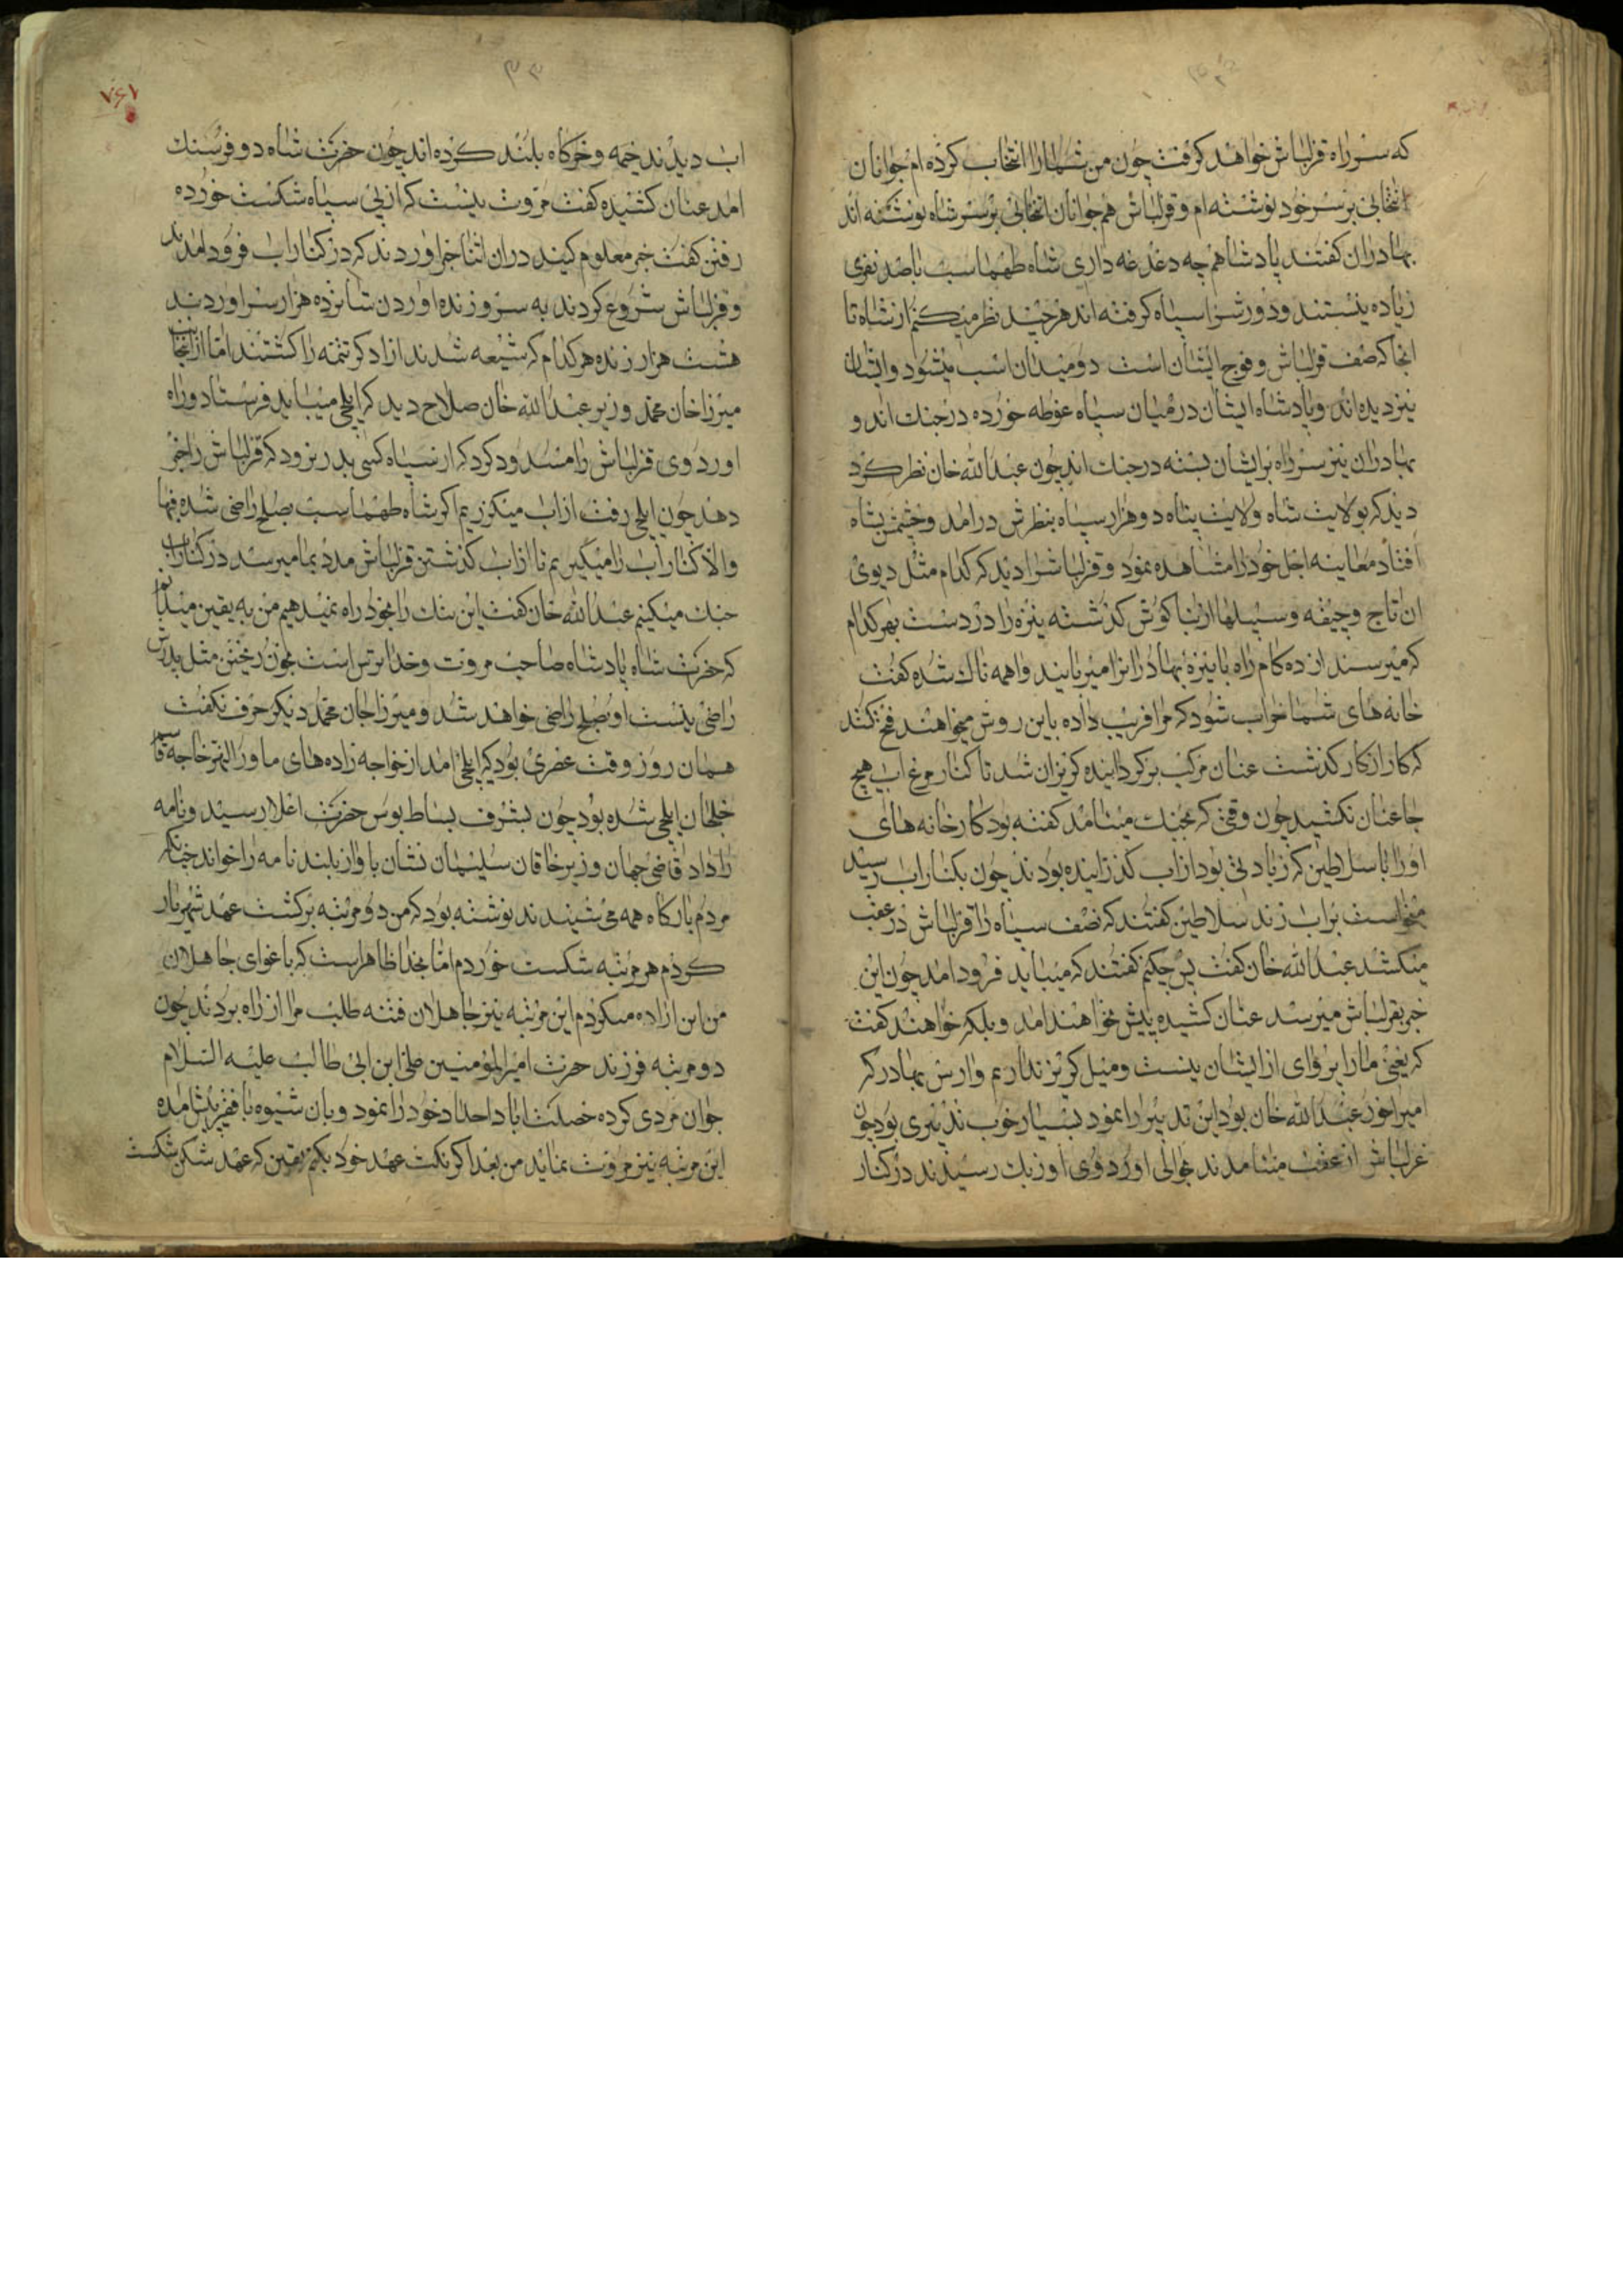 که سر راه قزلباش خواهد کرفت چون من شما را انتخاب کرده ام جوانان
انتخابی بر سر خود نوشته ام و قزلباش هم جوانان انتخابی بر سر شاه نوشته اند
بهادران کفتند پادشاهم چه دغدغه داری شاه طهماسب با صد نفری
زیاده نیستند و دورش را سپاه کرفته اند هر چند نظر میکنم از شاه تا
انجا که صف قزلباش و فوج ایشان است دو میدان اسب میشود و ایشان
نیز دیده اند و پادشاه ایشان در میان سپاه غوطه خورده در جنک اند و
بهادران نیز سر راه بر ایشان بسته در جنک اند چون عبدالله خان نظر کرد
دید که بولایت شاه ولایت پناه دو هزار سپاه بنظرش درامد و چشمش بشاه
افتاد معاینه اجل خود را مشاهده نمود و قزلباش را دید که کدام مثل دیوی
ان تاج و جیغه و سبیلها از بنا کوش کذشته نیزه را در دست بهر کدام
که میرسند از ده کام راه با نیزه بهادران را میربایند واهمه ناک شده کفت
خانه های شما خراب شود که مرا فریب داده باین روش میخواهند فتح کنند
که کار از کار کذشت عنان مرکب برکردانیده کریزان شد تا کنار مرغاب هیچ
جا عنان نکشید چون وقتی که بجنک میامد کفته بود کارخانه های
او را با سلاطین که زیادتی بود از اب کذرانیده بودند چون بکنار اب رسید
میخواست بر اب زند سلاطین کفتند که نصف سپاه را قزلباش در عقب
میکشد عبدالله خان کفت پس چکنم کفتند که میباید فرود امد چون این
خبر بقزلباش میرسد عنان کشیده پیش نخواهند امد و بلکه خواهند کفت
که یعنی ما را پروای از ایشان نیست و میل کریز نداریم وارس بهادر که
امیراخور عبدالله خان بود این تدبیر را نمود بسیار خوب تدبیری بود چون
غزلباش از عقب میامدند حوالی اوردوی اوزبک رسیدند در کنار
۷۶۷
اب دیدند خیمه و خرکاه بلند کرده اند چون حضرت شاه دو فرسنک
امد عنان کشیده کفت مروت نیست که از پی سپاه شکست خورده
رفتن کفت خبر معلوم کنید در ان اثنا خبر اوردند که در کنار اب فرود امدند
و قزلباش شروع کردند به سر و زنده اوردن شانزده هزار سر اوردند
هشت هزار زنده هر کدام که شیعه شدند ازاد کر تتمه را کشتند اما از انجانب
میرزا خان محمد وزیر عبدالله خان صلاح دید که ایلچی میباید فرستاد و راه
اوردوی قزلباش را مسدود کرد که از سپاه کسی بدر نرود که قزلباش را خبر
دهد چون ایلچی رفت از اب میکذریم اکر شاه طهماسب بصلح راضی شد فبها
و الا کنار اب را میکیریم تا از اب کذشتن قزلباش مدد بما میرسد در کنار اب
جنک میکنیم عبدالله خان کفت این ننک را بخود راه نمیدهیم من به یقین میدانم
که حضرت شاه پادشاه صاحب مروت و خدا ترس است بخون ریختن مثل پدرش
راضی نیست او بصلح راضی خواهد شد و میرزا جان محمد دیکر حرف نکفت
همان روز وقت عصری بود که ایلچی امد از خواجه زاده های ماورالنهر خاجه قاسم
خلخان ایلچی شده بود چون بشرف بساط بوس حضرت اعلا رسید و نامه
را داد قاضی جهان وزیر خاقان سلیمان نشان باواز بلند نامه را خواند چنانکه
مردم بارکاه همه می شنیدند نوشته بود که من دو مرتبه برکشت عهد شهریار
کردم هر مرتبه شکست خوردم اما بخدا ظاهر است که باغوای جاهلان
من این اراده میکردم این مرتبه نیز جاهلان فتنه طلب مرا از راه بردند چون
دو مرتبه فرزند حضرت امیرالمؤمنین علی ابن ابی طالب علیه السلام
جوان مردی کرده خصلت ابا د اجداد خود را نمود و بان شیوه با فقیر پیش امده
این مرتبه نیز مروت نماید من بعد اکر نکث عهد خود بکنم یقین که عهد شکن شکست